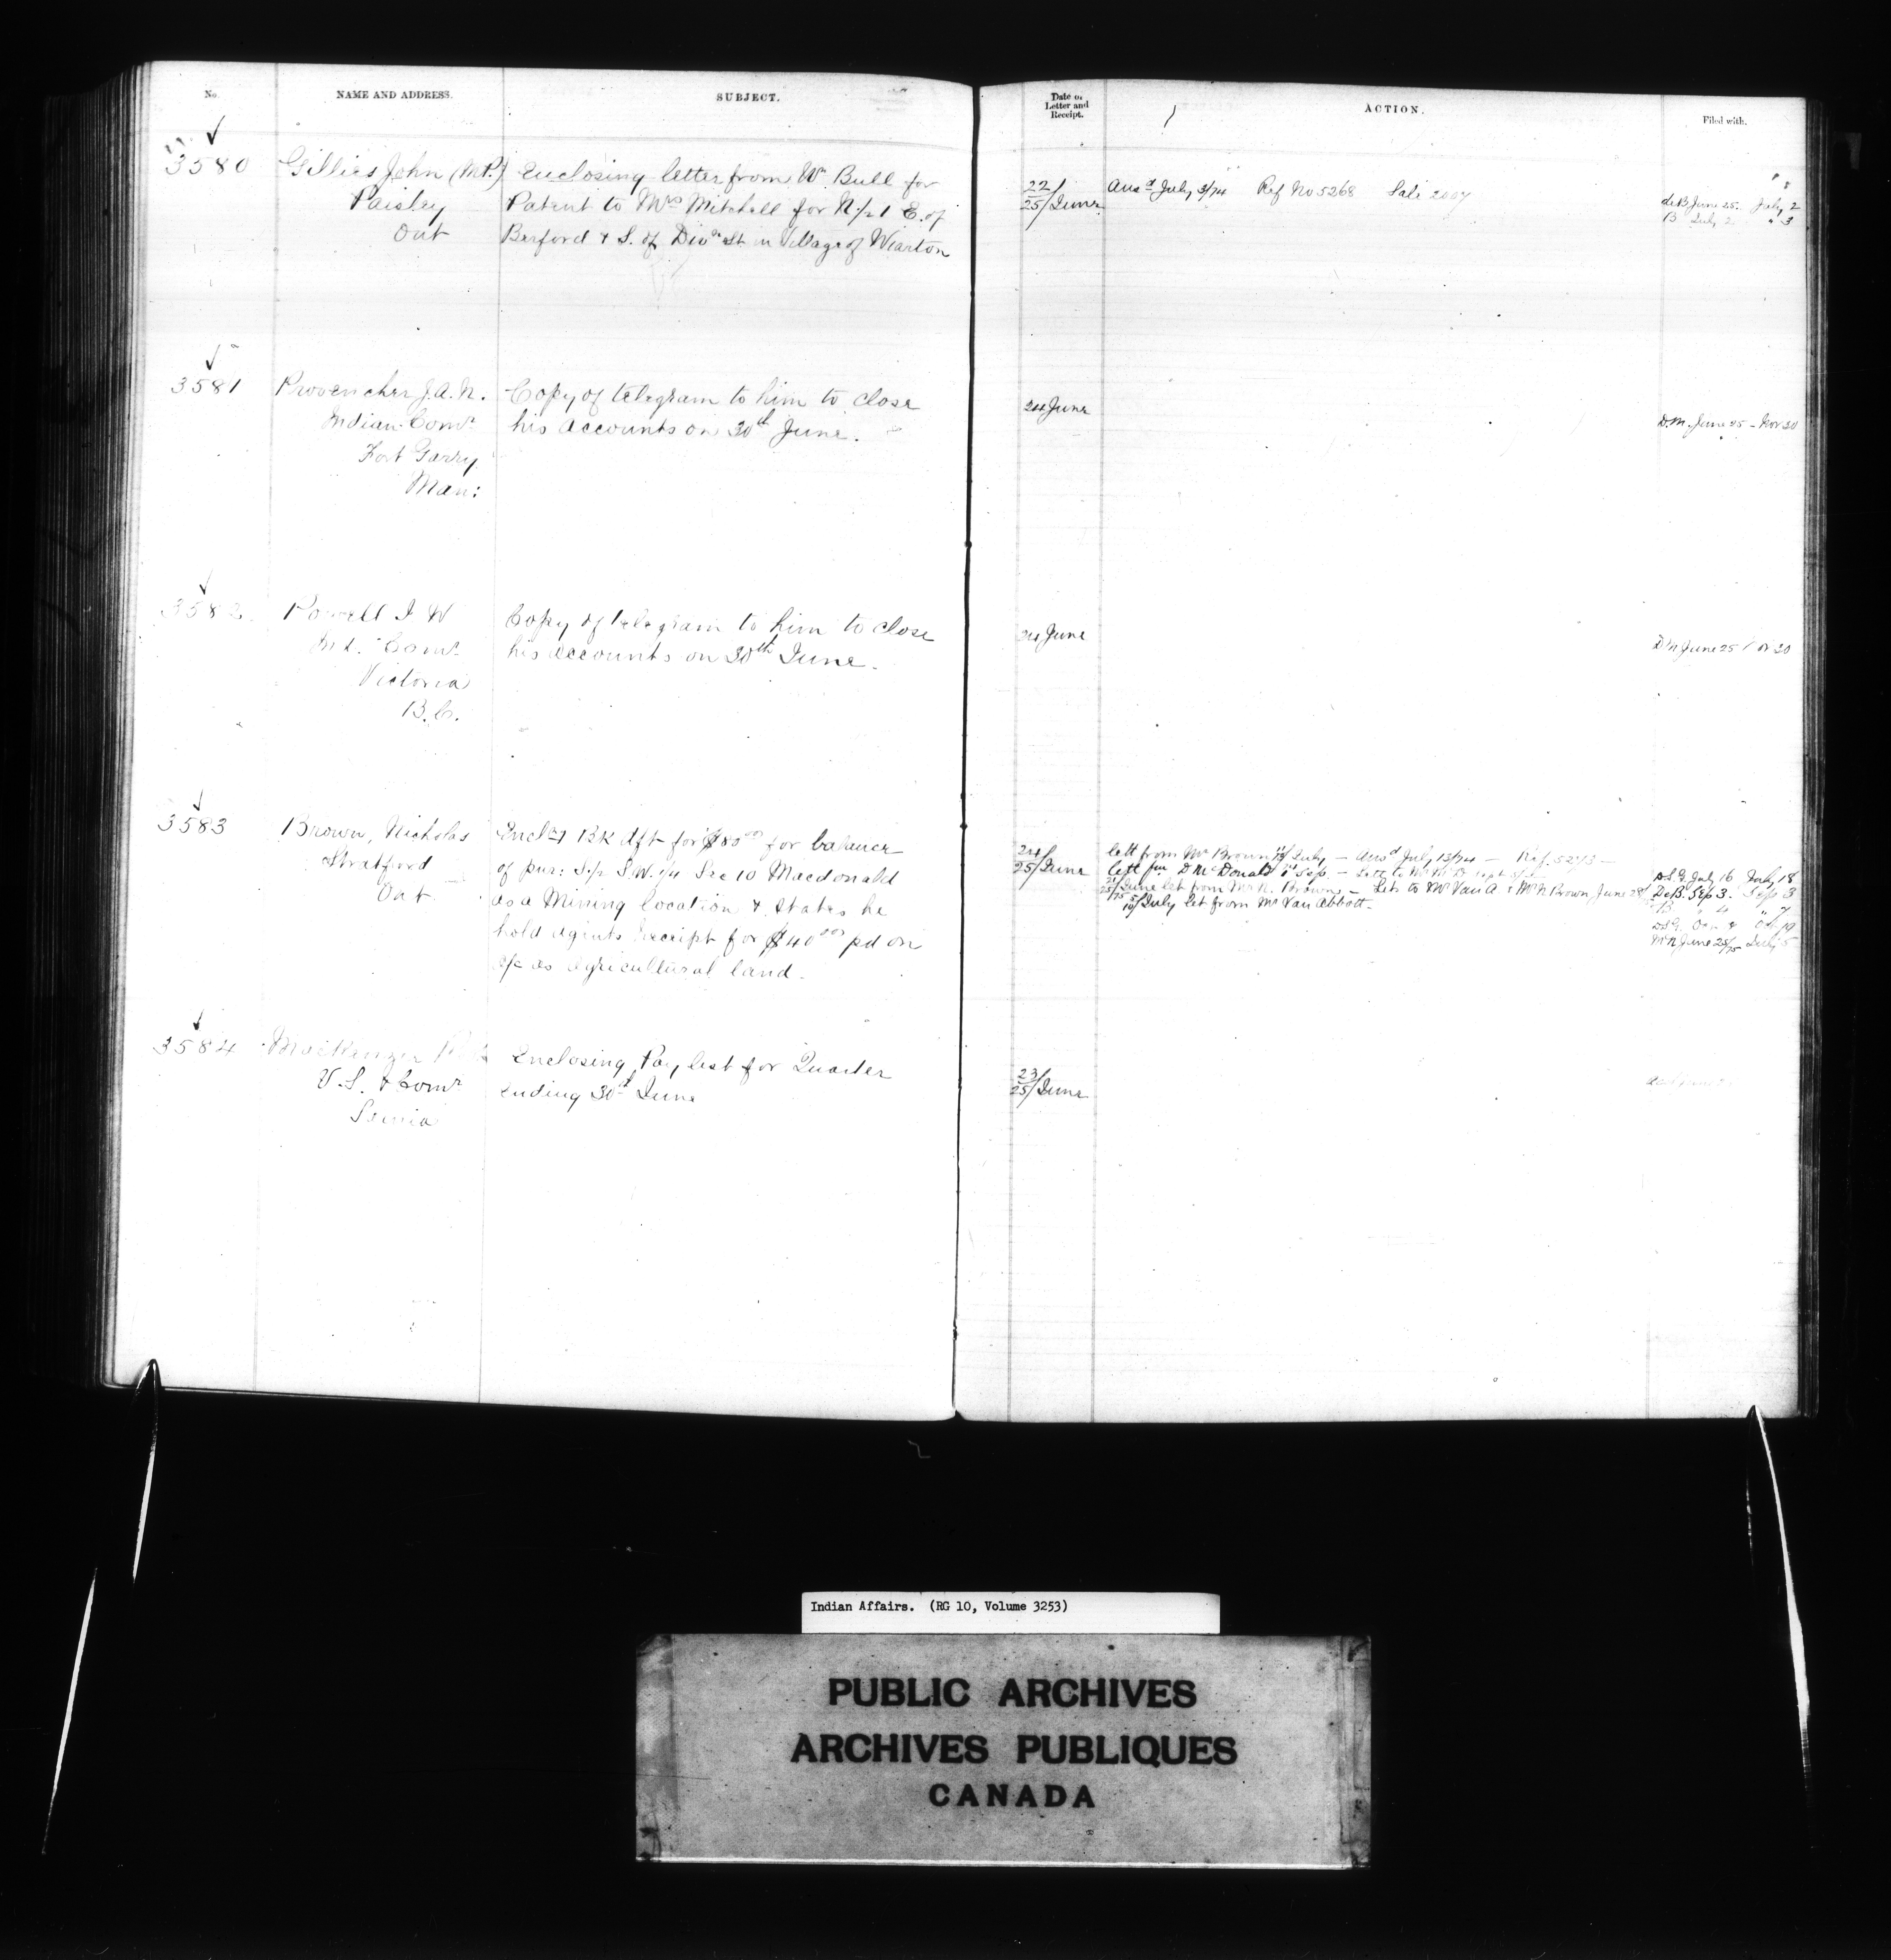 No. NAME AND ADDRESS. SUBJECT. Date of Letter and Receipt. ACTION. Filed with.
3580 Gillies John (M.P.) Enclosing letter from Wm Bull for
Paisley Patent to Mrs Mitchell for N. 1/2 1 E. of
Ont Berford & S. of Divn St in Village of Wiarton
22/25/June Ansd July 3/74 Ref No 5268 Sale 2007
deB June 25. July 2
B July 2 " 3
3581 Provencher J.A.N. Copy of telegram to him to close
Indian Comr his accounts on 30th June.
Fort Garry
Man:
24 June
D.M. June 25 - Nov 20
3582 Powell I W Copy of telegram to him to close
Ind. Comr his accounts on 30th June.
Victoria
B.C.
24 June
June 25
3583 Brown, Nicholas Encl. Bk dft for $80 00 for balance
Stratford of pur: S 1/2 S.W. 1/4 Sec 10 Macdonald
Ont as a Mining location & states he
hold agents receipt for $40 00 pd on
a/c as agricultural land.
24/25/June lett from Mr Brown July — Ansd July 13/74 — Ref.
lett fm D McDonald 1st Sep —
June let from Mr N. Brown — Lets to Mr Van A & Mr N Brown, June 28
July let from Mr Van Abbott.
D.S.G. July 16 July 18
DeB. Sep 3. Sep 3
B " 4 " 7
June 25/75 July 5
3584 MacKenzie Enclosing Pay list for Quarter
V.S. & Comr ending 30th June
Sarnia
23/25/June
Indian Affairs. (RG 10, Volume 3253)
PUBLIC ARCHIVES
ARCHIVES PUBLIQUES
CANADA